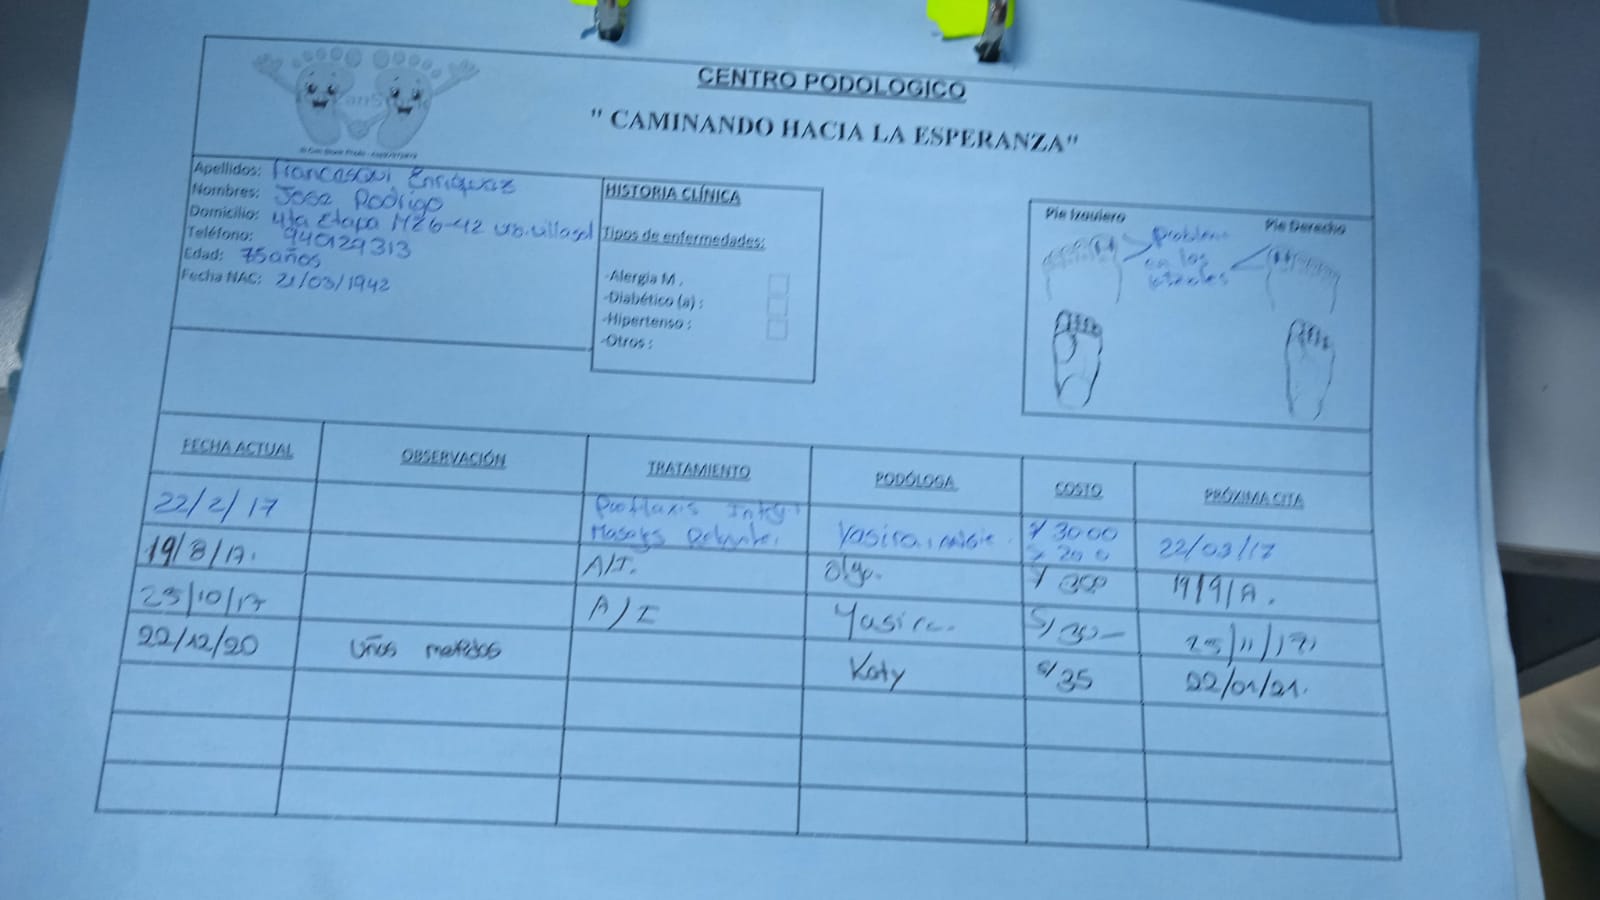 CENTRO PODOLOGICO
" CAMINANDO HACIA LA ESPERANZA"
Apellidos: Enriquez
Nombres: Jose Rodrigo
Domicilio: 4ta Etapa MZ6-42 villasol
Teléfono: 940129313
Edad: 75años
Fecha NAC: 21/03/1942
HISTORIA CLÍNICA
Tipos de enfermedades:
-Alergia M .
-Diabético (a) :
-Hipertenso :
-Otros :
Pie Izquiero
Pie Derecho
en los
laterales
FECHA ACTUAL OBSERVACIÓN TRATAMIENTO PODÓLOGA COSTO PRÓXIMA CITA
22/2/17 Profilaxis S/ 3000 22/03/17
Masajes
19/8/17. A/I. Olga. 19/9/17.
25/10/17 A/I Yasira. S/30- 25/11/17
22/12/20 Uñas metidas Katy S/35 22/01/21.